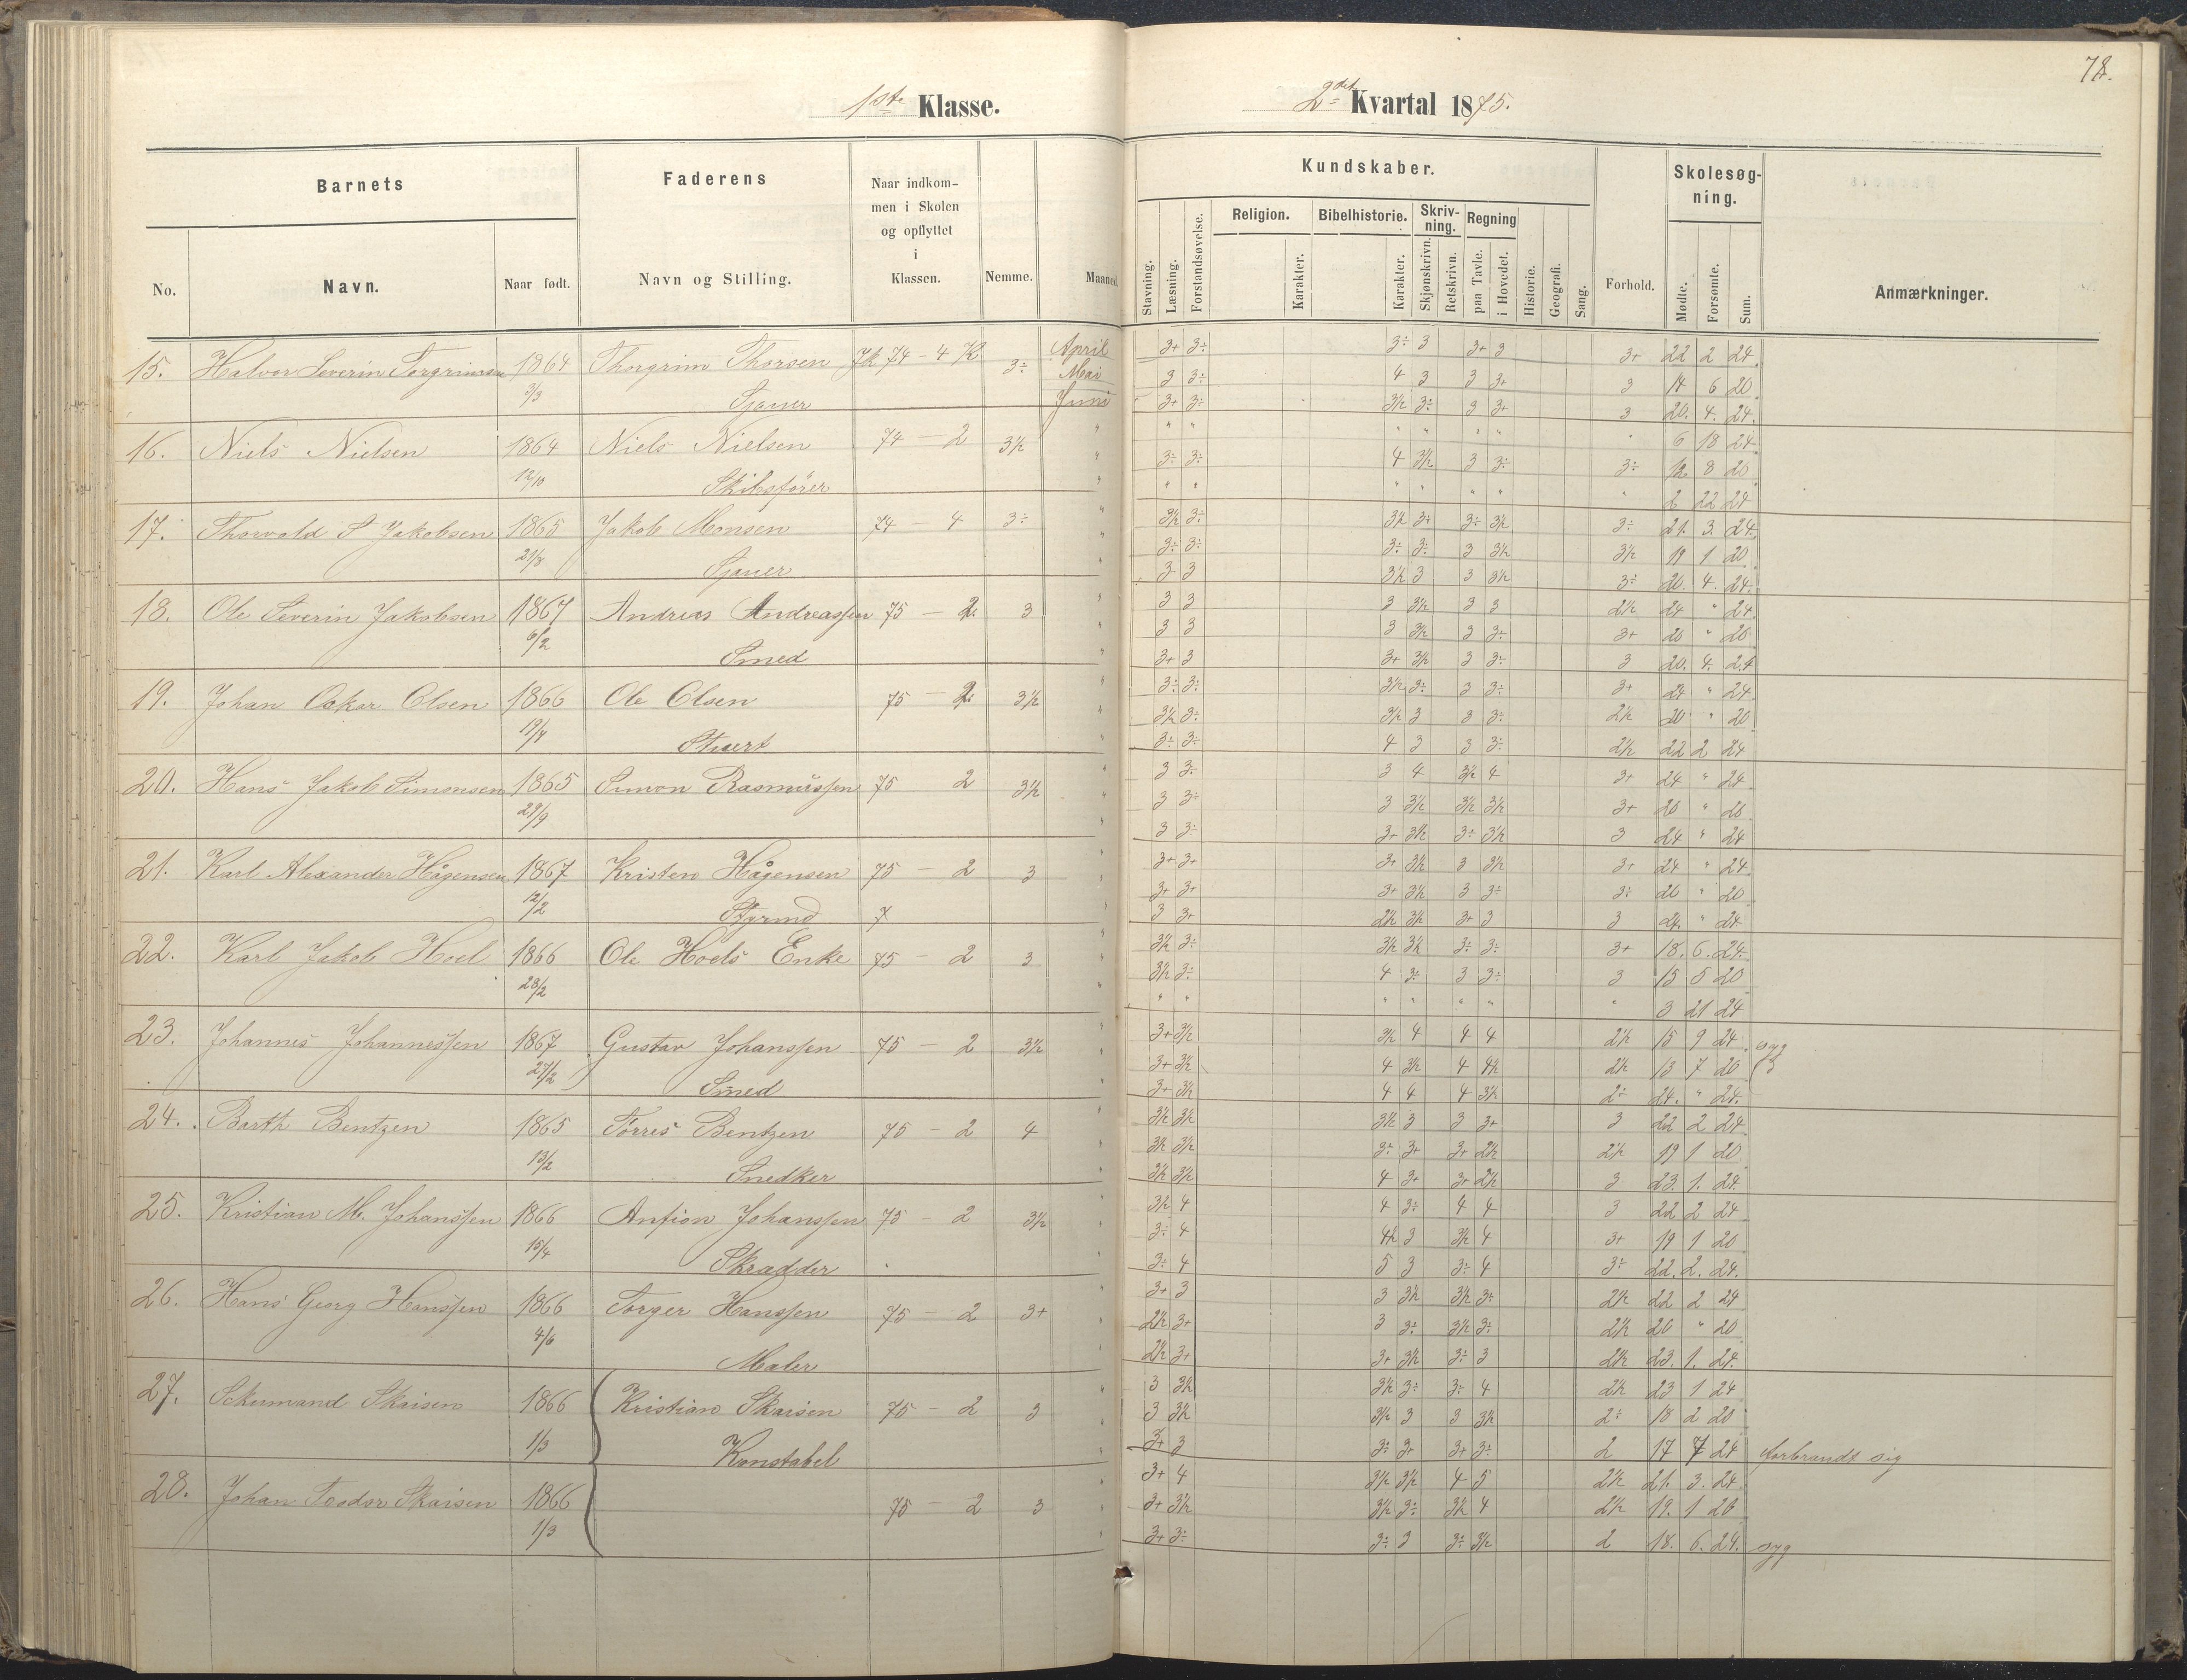 78.
1ste Klasse.
2det Kvartal 1875.
Barnets
Faderens
Naar indkommen i Skolen og opflyttet i Klassen.
Nemme.
Maaned.
No.
Navn.
Naar født.
Navn og Stilling.
Kundskaber.
Stavning.
Læsning.
Forstandsøvelse.
Religion.
Karakter.
Bibelhistorie.
Karakter.
Skrivning.
Skjønskrivn.
Retskrivn.
Regning
paa Tavle.
i Hovedet.
Historie.
Geografi.
Sang.
Forhold.
Skolesøgning.
Mødte.
Forsømte.
Sum.
Anmærkninger.
15. Halvor Severin Torgrimsen 1864 3/3 Thorgrim Thorsen Sjauer 74 - 4 3÷
April 3+ 3÷ 3÷ 3 3+ 3 3+ 22 2 24
Mai 3 3÷ 4 3 3 3+ 3 14 6 20
Juni 3+ 3÷ 3½ 3÷ 3 3+ 3 20. 4. 24.
16. Niels Nielsen 1864 12/10 Niels Nielsen Skibsfører 74 - 2 3½
" " " " " " " " 6 18 24
" 3÷ 3÷ 4 3½ 3 3÷ 3÷ 12 8 20
" " " " " " " " 2 22 24
17. Thorvald S Jakobsen 1865 21/8 Jakob Monsen Sjauer 74 - 4 3÷
" 3½ 3÷ 3½ 3÷ 3÷ 3½ 3÷ 21. 3. 24.
" 3÷ 3÷ 3÷ 3÷ 3 3½ 3½ 19 1 20
" 3 3 3½ 3 3 3½ 3÷ 20. 4. 24.
18. Ole Severin Jakobsen 1867 6/2 Andreas Andreassen Smed 75 - 2 3
" 3 3 3 3½ 3 3 2½ 24 " 24
" 3 3 3 3½ 3 3÷ 3+ 20 " 20
" 3+ 3 3+ 3½ 3 3÷ 3 20. 4. 24
19. Johan Oskar Olsen 1866 19/4 Ole Olsen Stuert 75 - 2 3½
" 3÷ 3÷ 3½ 3÷ 3 3÷ 3+ 24 " 24
" 3½ 3÷ 3½ 3 3 3÷ 2½ 20 " 20
" 3÷ 3÷ 4 3 3 3÷ 2½ 22 2 24
20. Hans Jakob Simonsen 1865 29/9 Simon Rasmussen 75 2 3½
" 3 3÷ 3 4 3½ 4 3+ 24 " 24
" 3 3÷ 3 3½ 3½ 3½ 3+ 20 " 20
" 3 3÷ 3+ 3½ 3÷ 3½ 3 24 " 24
21. Karl Alexander Hågensen 1867 12/2 Kristen Hågensen Styrmd 75 - 2 3
" 3+ 3+ 3+ 3½ 3 3½ 3+ 24 " 24
" 3+ 3+ 3+ 3½ 3 3÷ 3÷ 20 " 20
" 3 3+ 2½ 3½ 3+ 3 3 24. " 24
22. Karl Jakob Hoel 1866 23/2 Ole Hoels Enke 75 - 2 3
" 3½ 3÷ 3½ 3½ 3÷ 3÷ 3+ 18. 6. 24.
" 3½ 3÷ 4 3÷ 3 3÷ 3 15 5 20
" " " " " " " " 3 21 24
23. Johannes Johannessen 1867 27/2 Gustav Johanssen Smed 75 - 2 3½
3+ 3½ 3½ 4 4 4 2½ 15 9 24 syg
3+ 3½ 4 3½ 4 4½ 2½ 13 7 20
3+ 3½ 4 4 4 3½ 2÷ 24. " 24.
24. Barth Bentzen 1865 13/2 Torres Bentzen Snedker 75 - 2 4
3½ 3½ 3½ 3 3 3+ 3 22 2 24
3½ 3½ 3÷ 3+ 3+ 2½ 2½ 19 1 20
3½ 3½ 4 3+ 3+ 2½ 3 23. 1. 24.
25. Kristian M. Johanssen 1866 15/4 Anfion Johanssen Skradder 75 - 2 3½
3½ 4 4 3÷ 4 4 3 22 2 24
3÷ 4 4½ 3 3½ 4 3+ 19 1 20
3÷ 4 5 3 3÷ 4 3÷ 22. 2. 24.
26. Hans Georg Hanssen 1866 4/6 Torger Hanssen Maler 75 - 2 3+
3+ 3 3 3½ 3½ 3÷ 2½ 22 2 24
2½ 3+ 3 3÷ 3½ 3÷ 2½ 20 " 20
2½ 3+ 3+ 3½ 3÷ 3 2½ 23. 1. 24.
27. Skaisen 1866 1/3 Kristian Skaisen Konstabel 75 - 2 3
3 3½ 3½ 3÷ 3÷ 4 2½ 23 1 24
3 3½ 3½ 3 3 3½ 2÷ 18 2 20
3+ 3 3÷ 3+ 3+ 3÷ 2 17 7 24 forbrandt sig
28. Johan Teodor Skaisen 1866 1/3 75 - 2 3
3+ 4 3½ 3½ 4 5 2½ 21. 3. 24
3+ 3½ 3½ 3÷ 3½ 4 2½ 19. 1 20
3+ 3÷ 3÷ 3 3÷ 3½ 2 18. 6. 24. syg